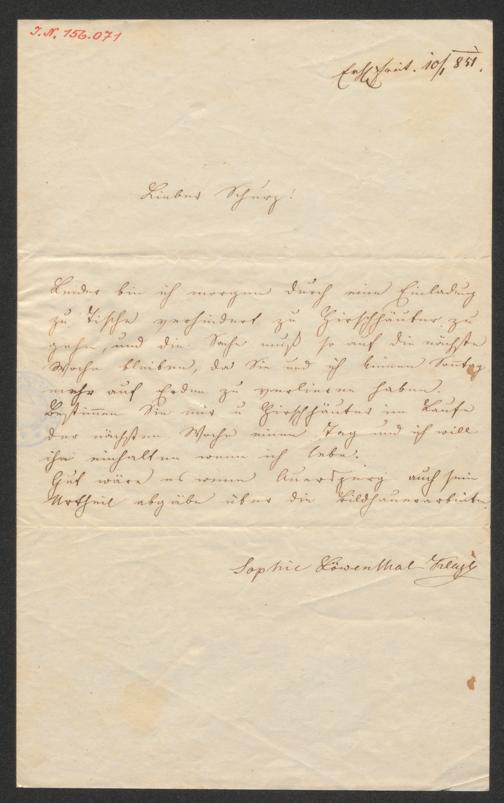 I. N. 156.071
10/1 851.
Lieber Schurz!
Leider bin ich morgen durch eine Einladung
zu Tische verhindert zu Hirschhäuter zu
gehen, und die Sache muß so auf die nächste
Woche bleiben, da Sie und ich keinen Sonntag
mehr auf Erden zu verlieren haben.
Bestimmen Sie mir u Hirschhäuter im Laufe
der nächsten Woche einen Tag und ich will
ihn einhalten wenn ich lebe.
Gut wäre es wenn Auersperg auch sein
Urtheil abgäbe über die Bildhauerarbeiten.
Sophie Löwenthal Kleyle